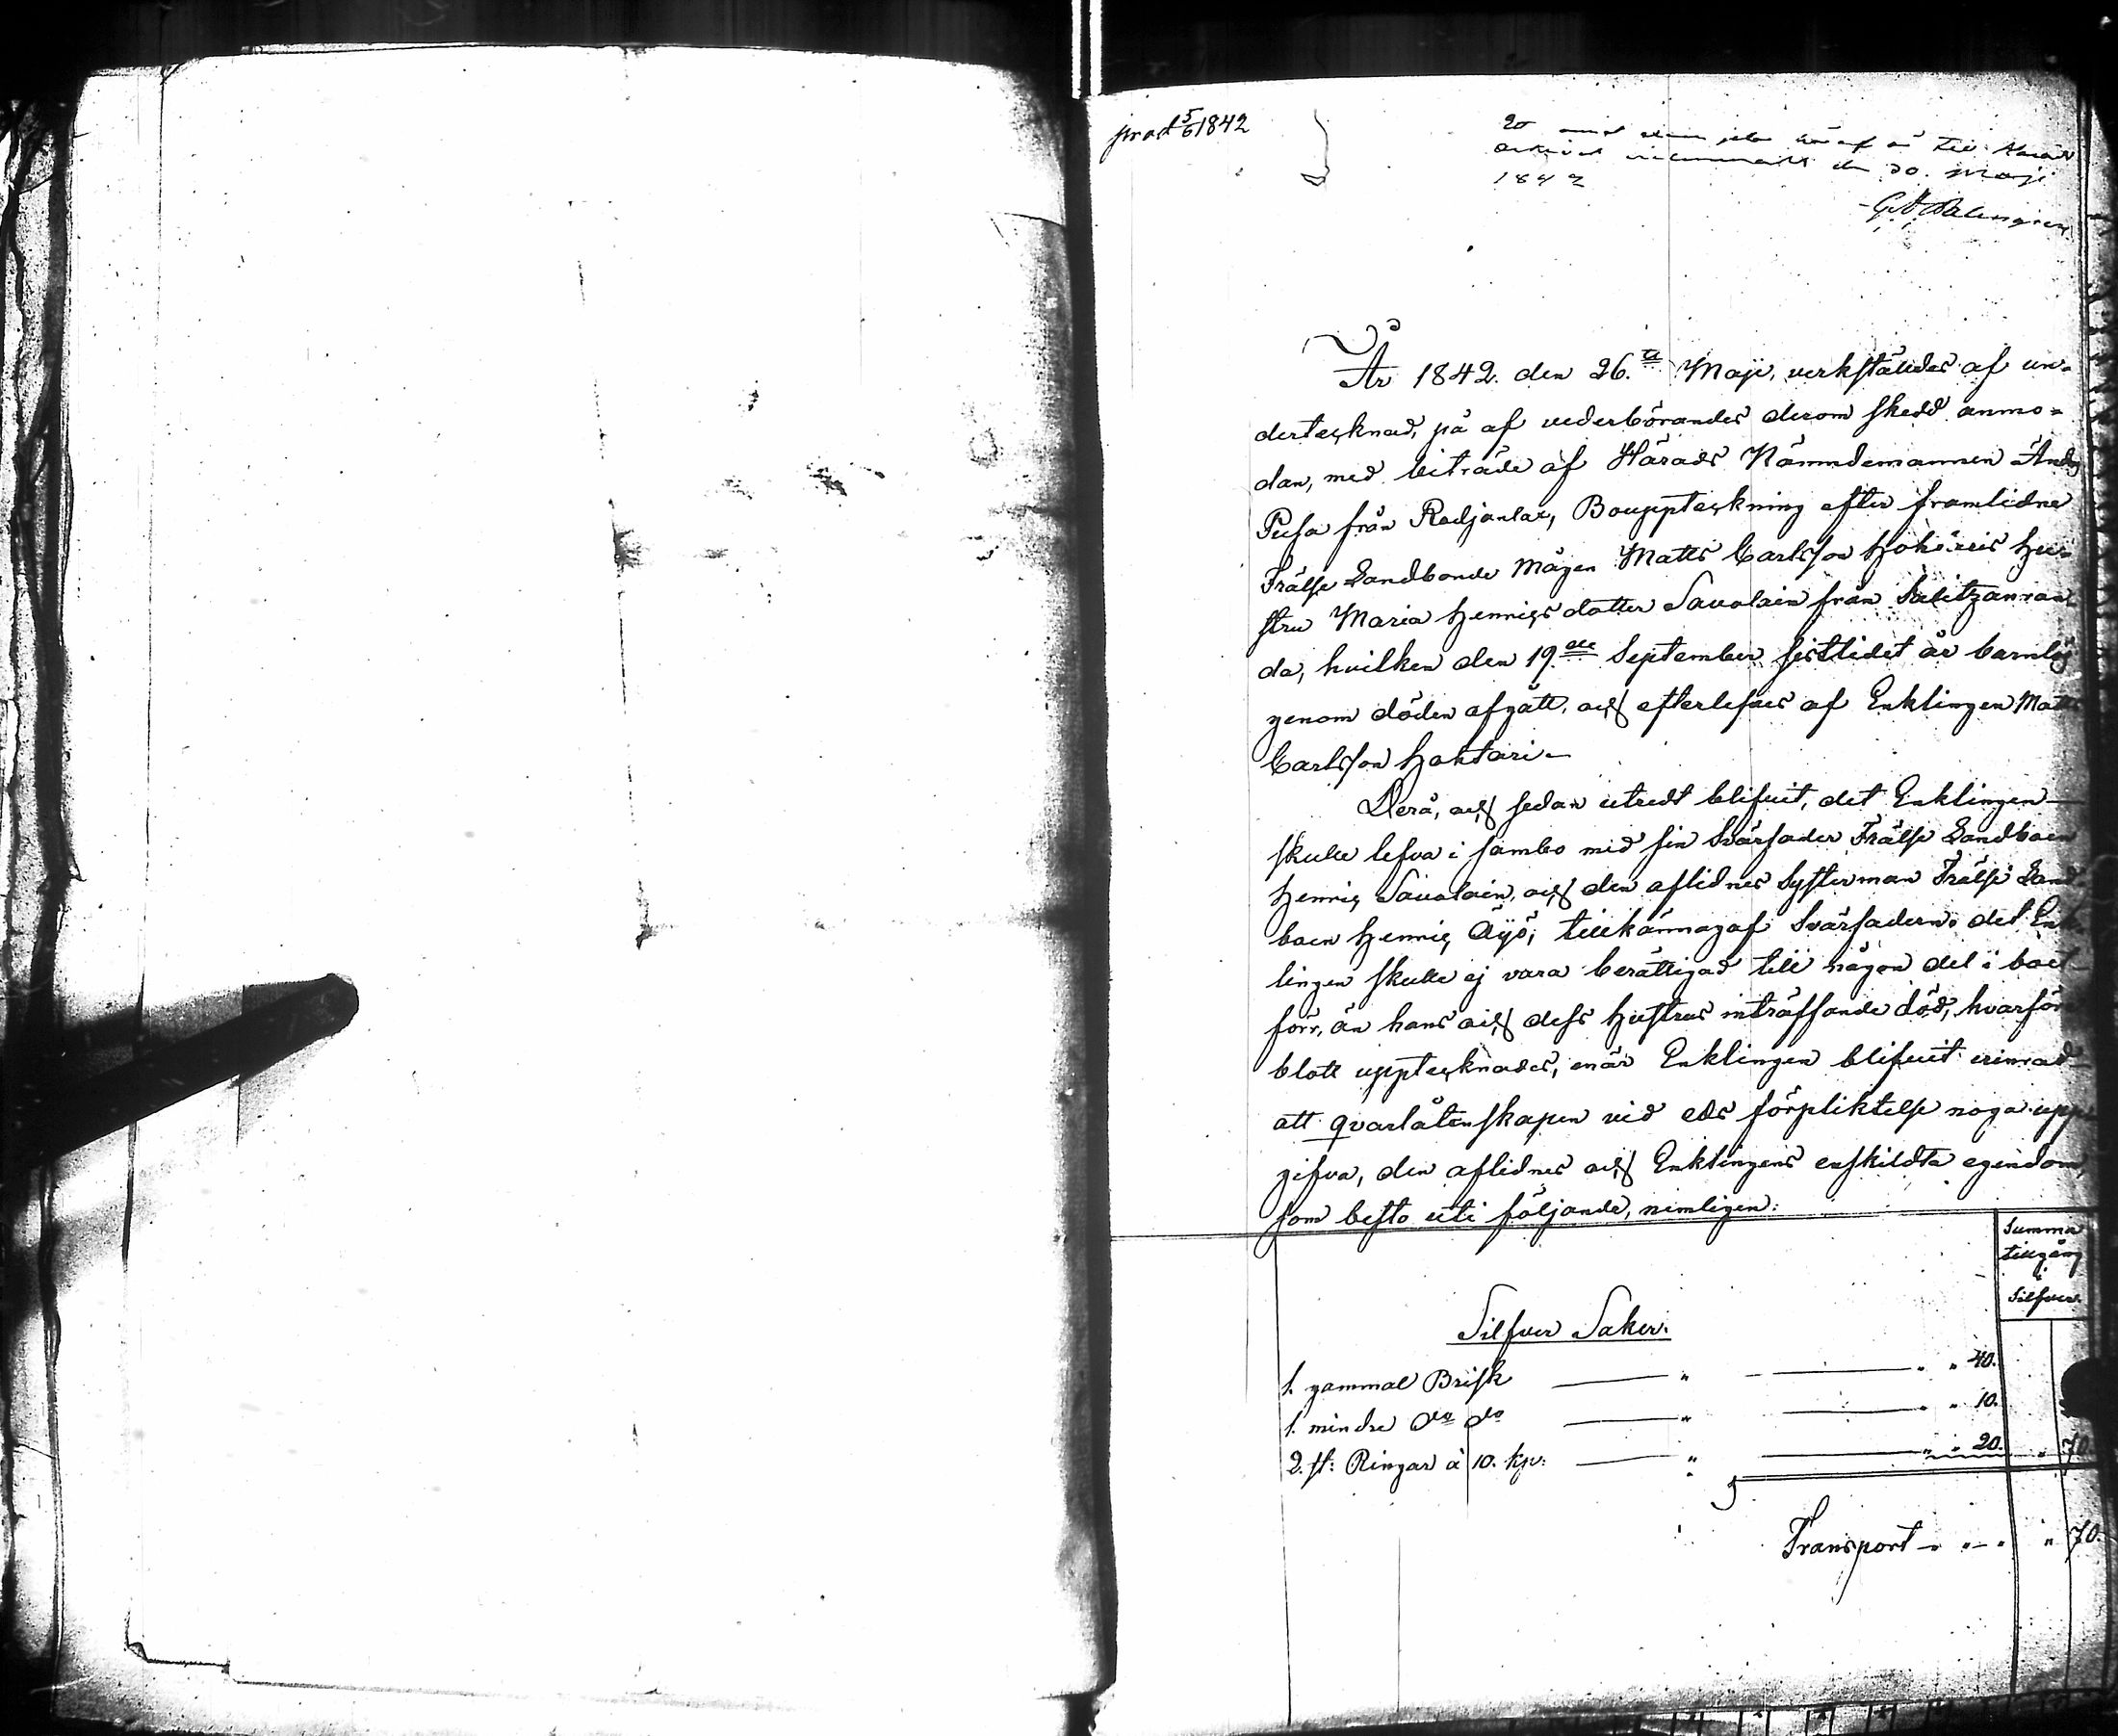 prod 5/6 1842
till
den 30. Maji
1842
År 1842. den 26.te Maji, verkställdes af un-
dertecknad, på af vederbörandes derom skedd anmo-
dan, med biträde af Härads Nämndemannen Anders
Pusa från Radjanlax, Bouppteckning efter framlidne
Frälse Landbonde Mågen Matts Carlsson Hokäris Hu-
stru Maria Henricsdotter Savolain från
da, hvilken den 19de September sistlidet år barnlös
genom döden afgått, och efterlefves af Enklingen Matts
Carlsson Hoktari.
Derå, och sedan utredt blifvit, det Enklingen
skulle lefva i sambo med sin Svärfader Frälse Landboen
Henric Savolain, och den aflidnes Systerman Frälse Land-
boen Henric Äijö, tillkännagaf Svärfadern, det Enk-
lingen skulle ej vara berättigad till någon del i boet
förr, än hans och dess Hustrus inträffande död, hvarför
blott upptecknades, enär Enklingen blifvit erinrad
att qvarlåtenskapen vid eds förpliktelse noga upp-
gifva, den aflidnes och Enklingens enskildta egendom,
som besto uti följande, nemligen:
Summa
tillgång
i
Silfver.
Silfver Saker.
1. gammal Brisk — " — " " 40.
1. mindre do do — " — " " 10.
2. st: Ringar à 10. kop: — " — " " 20. " 70.
Transport - " - " " 70.